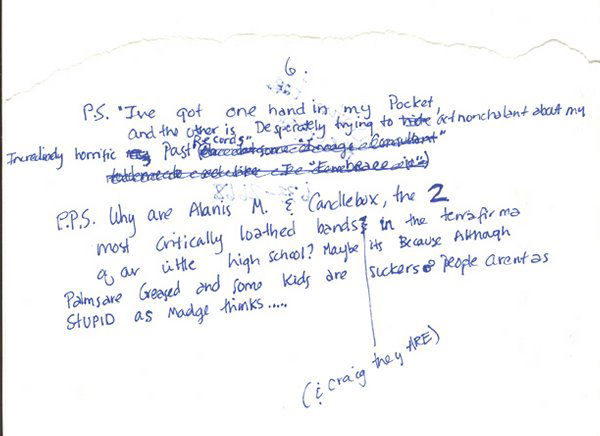 6.
P.S. "Ive got one hand in my Pocket,
and the other is Desperately trying to hide act nonchalant about my
Incredibly horrific Past Records" some damage consultant"
told me to act like I "embrace it")
P.P.S. Why are Alanis M. & Candlebox, the 2
most critically loathed bands in the terrafirma
of our little high school? Maybe its Because Although
Palms are Greased and some kids are suckers People arent as
STUPID as Madge thinks.....
(& Craig they ARE)